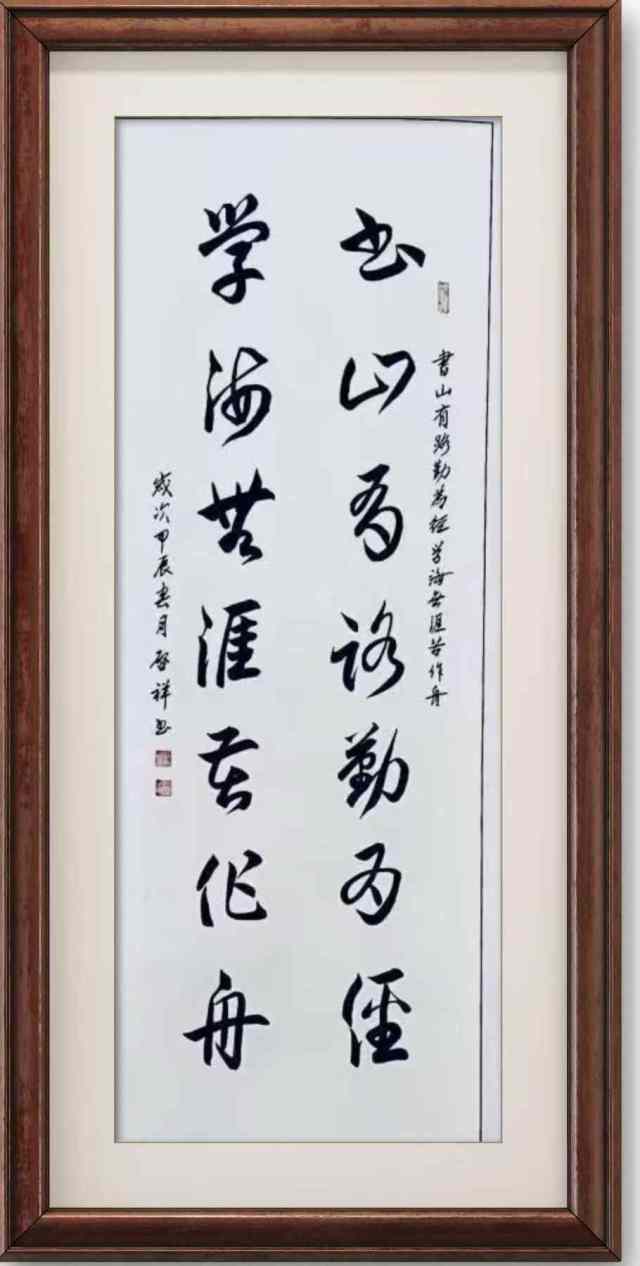 書山有路勤為徑学海无涯苦作舟
书山有路勤为径
学海無涯苦作舟
歲次甲辰春月啓祥书